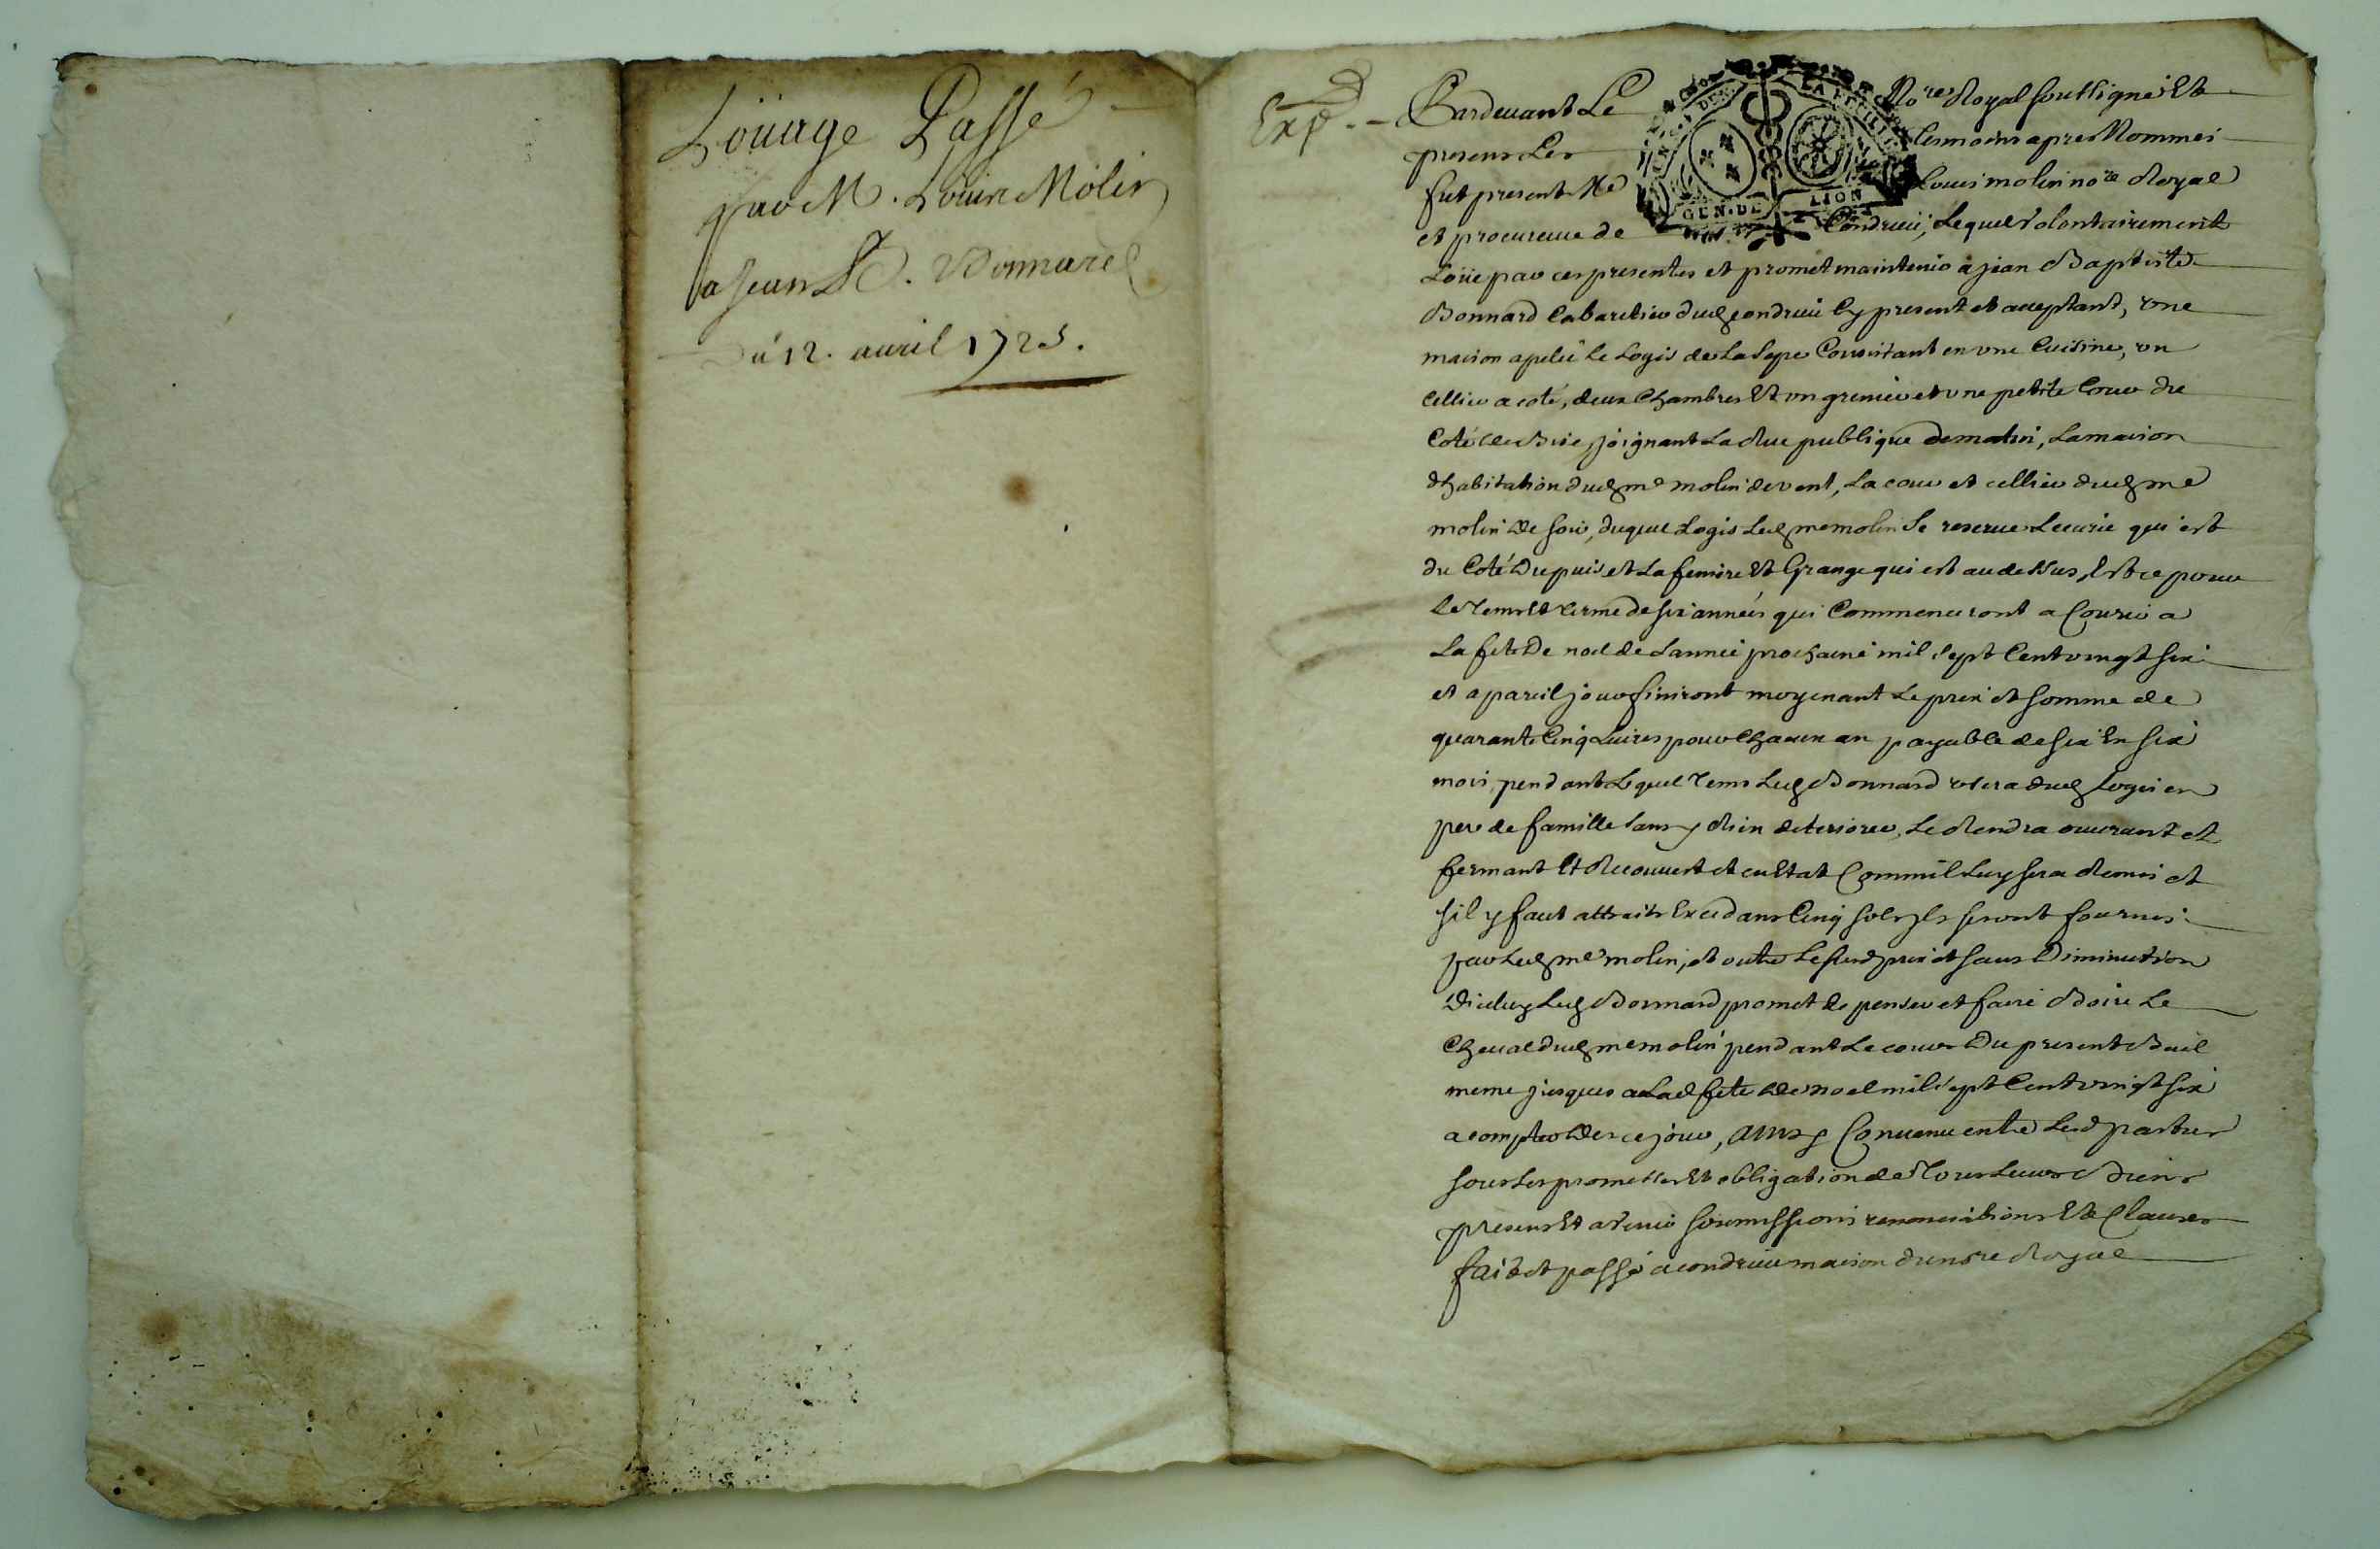 Loüage Passé
par M. Loüis Molin
a Jean B. Bonnard
Du 12. auril 1725.
Exp.
Pardeuant Le No.re Royal soussigné Et
presens Les temoins apres Nommes
fut present Me Louis molin no.re Royal
et procureur de Condrieu, Lequel volontairement
Loüe par ces presentes et promet maintenir a jean Baptiste
Bonnard Cabaretier dud condrieu Cy present et acceptant, vne
maison apelée Le Logis de La Consistant en vne Cuisine, vn
Cellier a coté, deux Chambres Et vn grenier et vne petite Cour du
Coté de Bize, joignant La Rue publique de matin, La maison
dhabitation dud me molin de vent, La cour et cellier dud me
molin de soir, duquel Logis Led me molin Se reserue Lecurie qui est
du Coté Du puis et La feniere Et Grange qui est au dessus, Et ce pour
le Tems Et terme de six années qui Commenceront a Courir a
La fete De noel de Lannée prochaine mil Sept Cent vingt six
et a pareil jour finiront moyenant Le prix et somme de
quarante Cinq Liures pour Chacun an payable de six En six
mois, pendant Lequel Tems Led Bonnard vsera dud Logis en
pere de famille sans y Rien deteriorer, Le Rendra ouurant et
fermant Et Recouuert et en Etat Comme il Luy sera Remis et
sil y faut attraits Excedans Cinq sols jls seront fournis
par Led me molin, et outre Le susd prix et sans Diminution
Diceluy Led Bonnard promet de penser et faire Boire Le
Cheual dud me molin pendant Le cours Du present Bail
meme jusques a Lad fete de noel mil sept Cent vingt six
a compter Des ce jour, ainsy Conuenu entre Lesd parties
sous Les promesses Et obligation de Tous Leurs Biens
presens Et a venir soumissions renonciations Et Clauses
fait et passé a condrieu maison du no.re Royal
GEN. DE LION